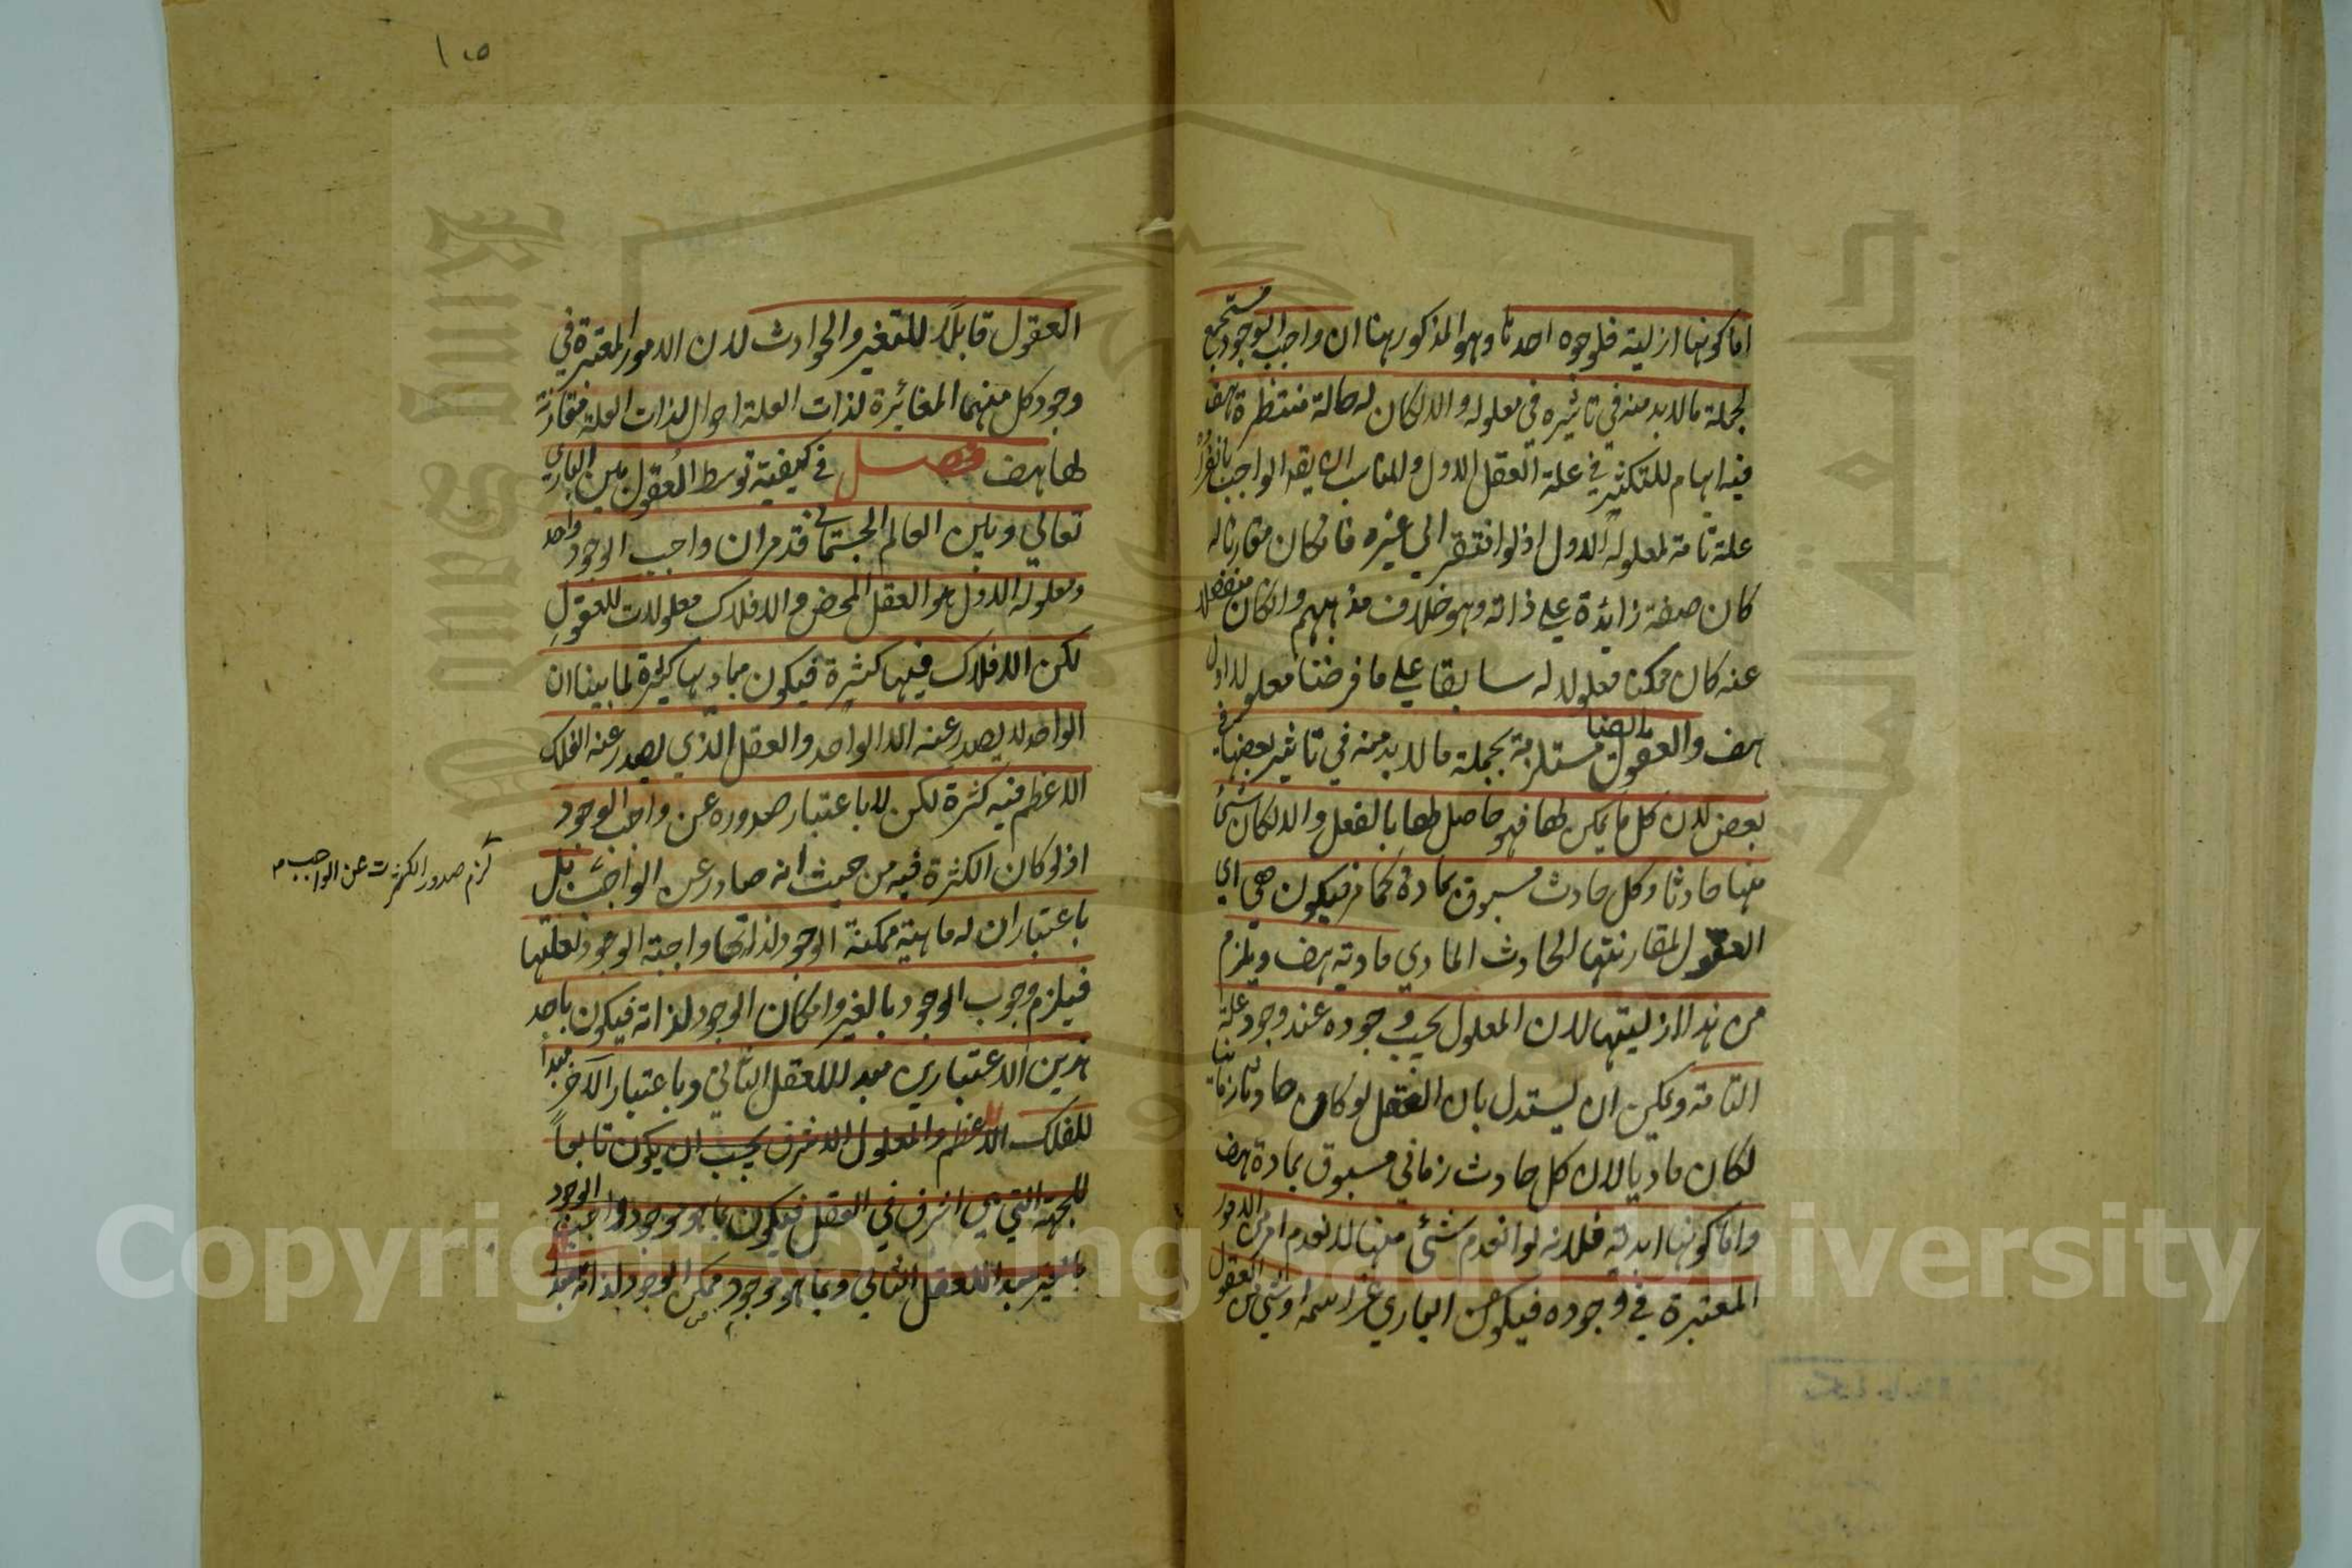 اما كونها ازلية فلوجوه احدها وهو المذكور ههنا ان واجب الوجود مستجمع
لجملة ما لا بد منه في تاثيره في معلوله والا لكان له حالة منتظرة هف
فيه ايهام للتكثر في علة العقل الاول والمناسب ان يقال الواجب بانفراده
علة تامة لمعلوله الاول اذ لو افتقر الى غيره فان كان مقارنا له
كان صفة زايدة على ذاته وهو خلاف مذهبهم وان كان منفصلا
عنه كان ممكنا معلولا له سابقا على ما فرضنا معلولا اول
هف والعقول ايضا مستلزمة بجملة ما لا بد منه في تاثير بعضها في
بعض لان كل ما يمكن لها فهو حاصل لها بالفعل والا لكان شئ
منها حادثا وكل حادث مسبوق بمادة كما مر فيكون هي اي
العقول لمقارنتها الحادث المادي مادية هف ويلزم
من هذا ازليتها لان المعلول يجب وجوده عند وجود علة
التامة ويمكن ان يستدل بان العقل لو كان حادثا زمانيا
لكان ماديا لان كل حادث زماني مسبوق بمادة هف
واما كونها ابدية فلانه لو انعدم شئ منها لانعدم امر من الامور
المعتبرة في وجوده فيكون الباري عز اسمه او شئ من العقول
١٥
العقول قابلا للتغير والحوادث لان الامور المعتبرة في
وجود كل منهما المغائرة لذات العلة احوال لذات العلة مقارنة
لها هف فصل في كيفية توسط العقول بين الباري
تعالي وبين العالم الجسماني قد مر ان واجب الوجود واحد
ومعلوله الاول هو العقل المحض والافلاك معلولات للعقول
لكن الافلاك فيها كثيرة فيكون مباديها كثيرة لما بينا ان
الواحد لا يصدر عنه الا الواحد والعقل الذي يصدر عنه الفلك
الاعظم فيه كثرة لكن لا باعتبار صدوره عن واجب الوجود
اذ لو كان الكثرة فيه من حيث انه صادر عن الواجب بل
لزم صدور الكثرت عن الواجب م
باعتبار ان له ماهية ممكنة الوجود لذاتها واجبة الوجود لعلتها
فيلزم وجوب الوجود بالغير وامكان الوجود لذاته فيكون باحد
هذين الاعتبارين مبدا للعقل الثاني وباعتبار الآخر مبدا
للفلك الاعظم والمعلول الاشرف يجب ان يكون تابعاً
للجهة التي هي اشرف في العقل فيكون بما هو موجود واجب الوجود
بالغير مبدا للعقل الثاني وبما هو موجود ممكن الوجود لذاته مبدا
Copyright © King Saud University